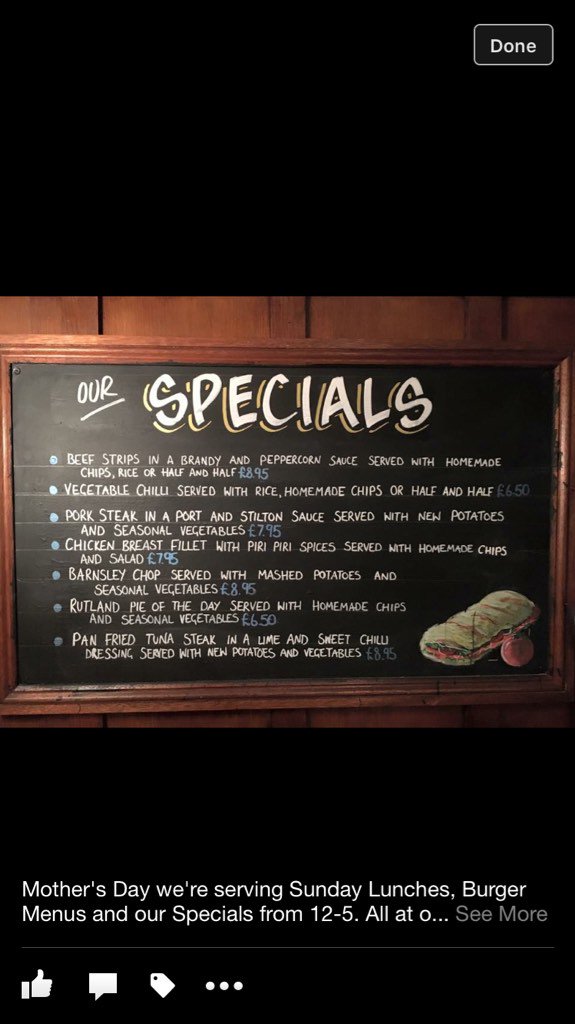 Done
OUR SPECIALS
BEEF STRIPS IN A BRANDY AND PEPPERCORN SAUCE SERVED WITH HOMEMADE
CHIPS, RICE OR HALF AND HALF £8.95
VEGETABLE CHILLI SERVED WITH RICE, HOMEMADE CHIPS OR HALF AND HALF £6.50
PORK STEAK IN A PORT AND STILTON SAUCE SERVED WITH NEW POTATOES
AND SEASONAL VEGETABLES £7.95
CHICKEN BREAST FILLET WITH PIRI PIRI SPICES SERVED WITH HOMEMADE CHIPS
AND SALAD £7.95
BARNSLEY CHOP SERVED WITH MASHED POTATOES AND
SEASONAL VEGETABLES £8.95
RUTLAND PIE OF THE DAY SERVED WITH HOMEMADE CHIPS
AND SEASONAL VEGETABLES £6.50
PAN FRIED TUNA STEAK IN A LIME AND SWEET CHILLI
DRESSING SERVED WITH NEW POTATOES AND VEGETABLES £8.95
Mother's Day we're serving Sunday Lunches, Burger
Menus and our Specials from 12-5. All at o... See More